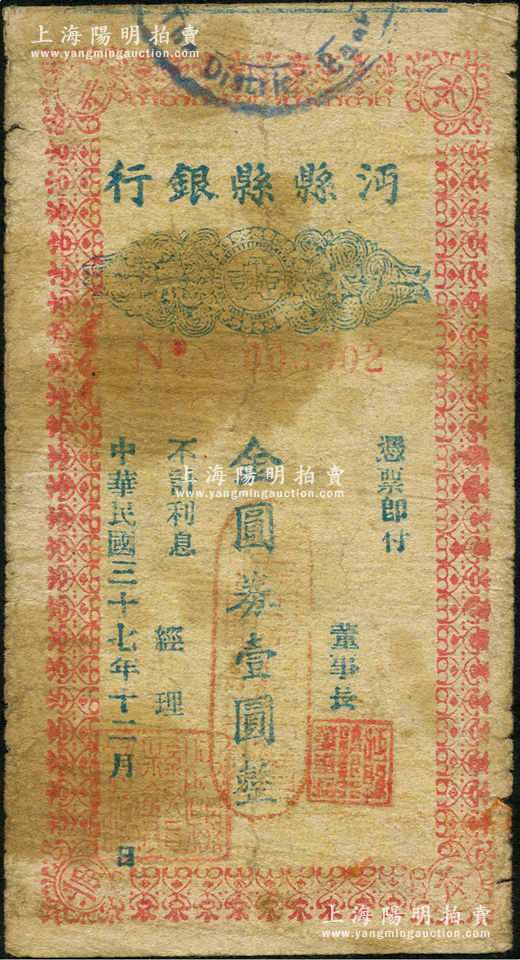 上海陽明拍賣
www.yangmingauction.com
District Bank
沔縣縣銀行
憑票即付
董事長
金圓券壹圓整
不計利息
經理
中華民國三十七年十二月 日
上海陽明拍賣
www.yangmingauction.com
上海陽明拍賣
www.yangmingauction.com